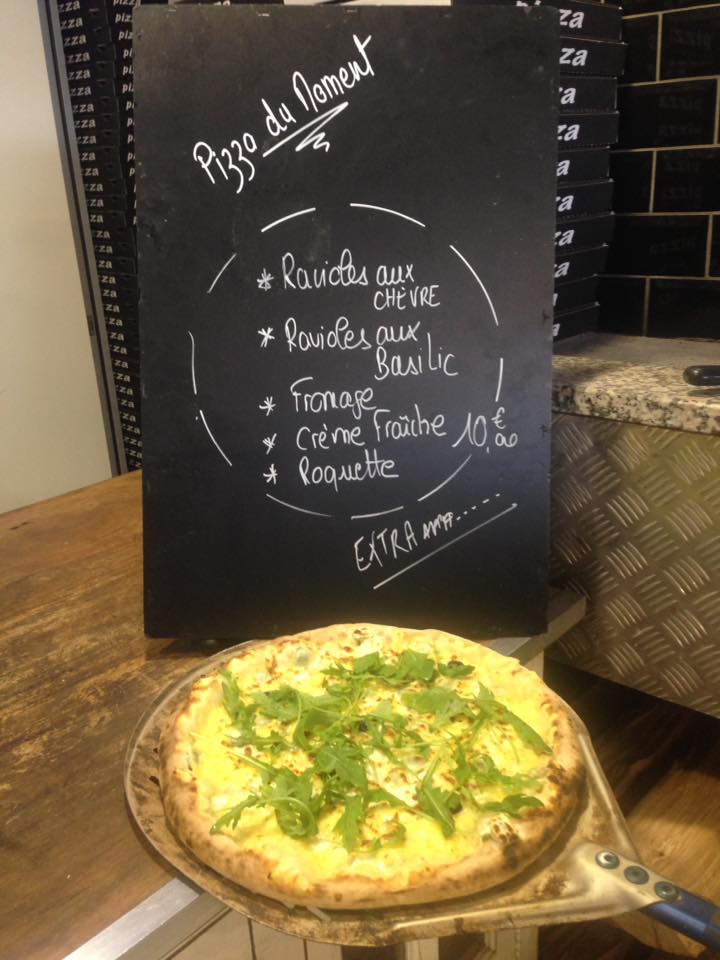 Pizza du Moment
* Ravioles aux
CHÈVRE
* Ravioles aux
Basilic
* Fromage
* Crème Fraîche 10,00 €
* Roquette
EXTRA
pizza
pizza
pizza
pizza
pizza
pizza